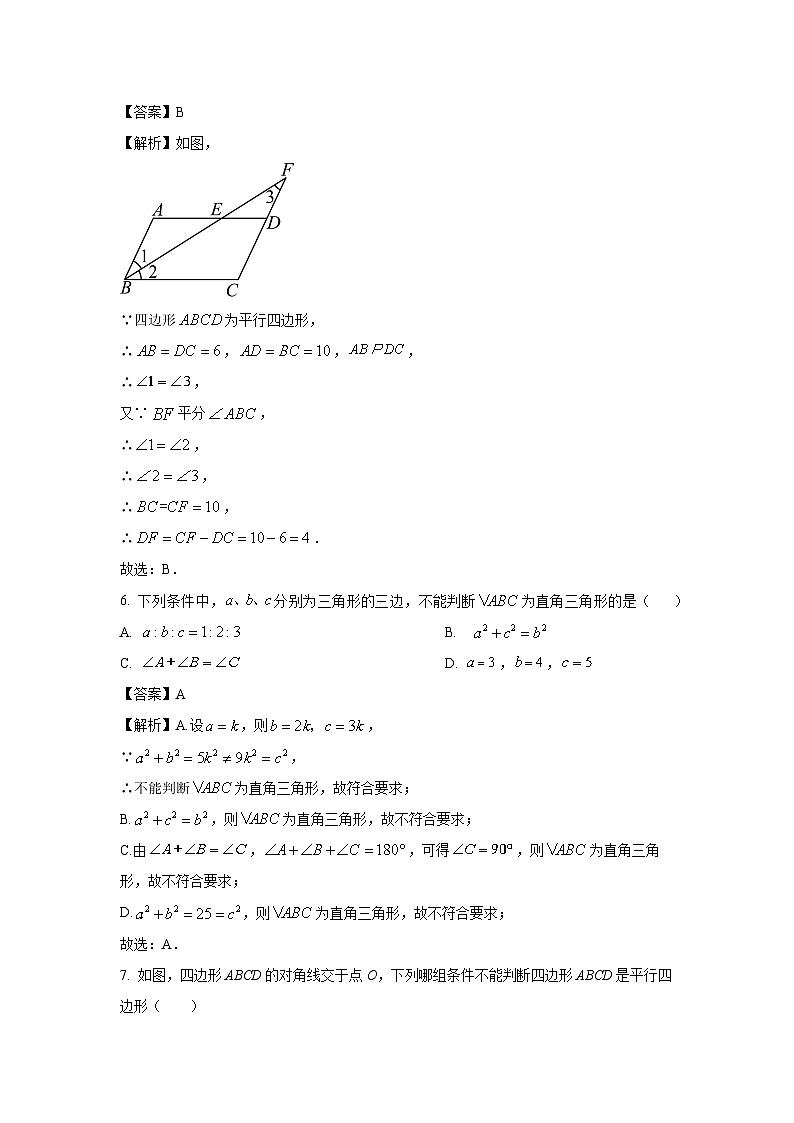 【答案】B
【解析】如图，
F
3
A
E
D
1
2
B
C
∵四边形ABCD为平行四边形，
∴AB=DC=6，AD=BC=10，AB∥DC，
∴∠1=∠3，
又∵BF平分∠ABC，
∴∠1=∠2，
∴∠2=∠3，
∴BC=CF=10，
∴DF=CF−DC=10−6=4．
故选：B．
6. 下列条件中，a、b、c分别为三角形的三边，不能判断\/ABC为直角三角形的是（　　）
A. a:b:c=1:2:3 B. a²+c²=b²
C. ∠A+∠B=∠C D. a=3，b=4，c=5
【答案】A
【解析】A.设a=k，则b=2k，c=3k，
∵a²+b²=5k²≠9k²=c²，
∴不能判断\/ABC为直角三角形，故符合要求；
B.a²+c²=b²，则\/ABC为直角三角形，故不符合要求；
C.由∠A+∠B=∠C，∠A+∠B+∠C=180°，可得∠C=90°，则\/ABC为直角三角
形，故不符合要求；
D.a²+b²=25=c²，则\/ABC为直角三角形，故不符合要求；
故选：A．
7. 如图，四边形ABCD的对角线交于点O，下列哪组条件不能判断四边形ABCD是平行四
边形（　　）